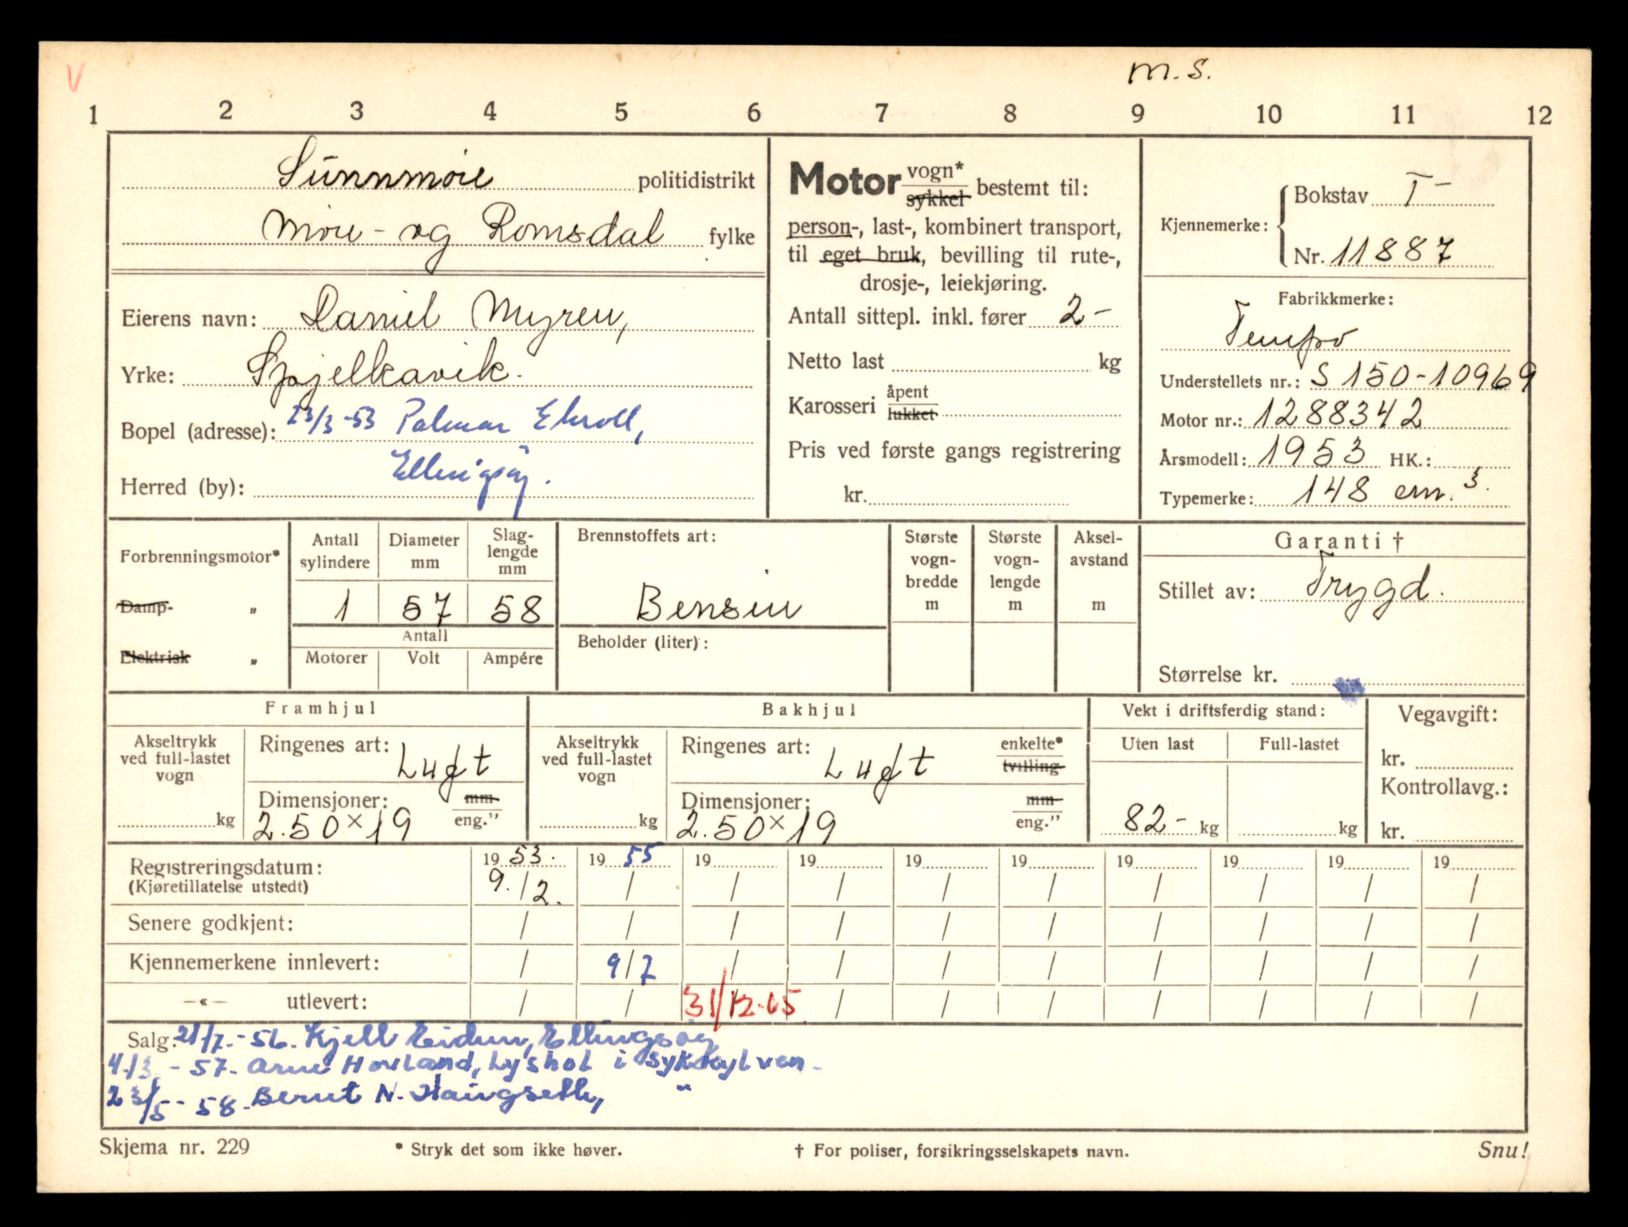 V
m.s.
1 2 3 4 5 6 7 8 9 10 11 12
Sunnmøre politidistrikt
Møre - og Romsdal fylke
Eierens navn: Daniel Myren,
Yrke: Spjelkavik.
Bopel (adresse): 23/3-53 Palmar Ekroll,
Herred (by): Ellingsøy.
Motor vogn* sykkel bestemt til:
person-, last-, kombinert transport,
til eget bruk, bevilling til rute-,
drosje-, leiekjøring.
Antall sittepl. inkl. fører 2-
Netto last kg
Karosseri åpent lukket
Pris ved første gangs registrering
kr.
Kjennemerke: Bokstav T-
Nr. 11887
Fabrikkmerke:
Tempo
Understellets nr.: S 150-10969
Motor nr.: 1288342
Årsmodell: 1953 HK.:
Typemerke: 148 cm.3.
Forbrenningsmotor*
Damp- "
Elektrisk "
Antall sylindere
1
Diameter mm
57
Slag-lengde mm
58
Antall
Motorer Volt Ampére
Brennstoffets art:
Bensin
Beholder (liter):
Største vogn-bredde m
Største vogn-lengde m
Aksel-avstand m
Garanti †
Stillet av: Trygd.
Størrelse kr.
Framhjul
Akseltrykk ved full-lastet vogn
kg
Ringenes art: Luft
Dimensjoner: mm
2.50×19 eng."
Bakhjul
Akseltrykk ved full-lastet vogn
kg
Ringenes art: Luft enkelte* tvilling
Dimensjoner: mm
2.50×19 eng."
Vekt i driftsferdig stand:
Uten last Full-lastet
82- kg kg
Vegavgift:
kr.
Kontrollavg.:
kr.
Registreringsdatum: 19 53. 19 55 19 19 19 19 19 19 19 19
(Kjøretillatelse utstedt) 9./2. / / / / / / / / /
Senere godkjent: / / / / / / / / / /
Kjennemerkene innlevert: / 9/7 / / / / / / / /
-«- utlevert: / / 31/12-65 / / / / / / /
Salg: 21/7.-56. Kjell Eidun, Ellingsøy
4/3 - 57. Arne Hovland, Lyshol i Sykkylven.
23/5 - 58. Bernt N. Haugseth, "
Skjema nr. 229 * Stryk det som ikke høver. † For poliser, forsikringsselskapets navn. Snu!